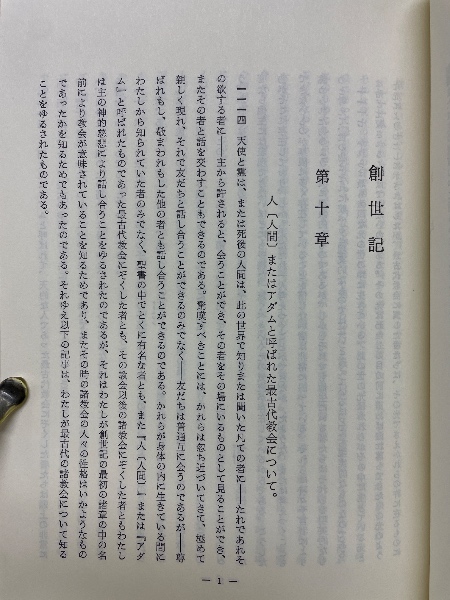 創世記
第十章
人〔人間〕またはアダムと呼ばれた最古代教会について。
一一一四　天使と霊は、または死後の人間は、此の世界で知りまたは聞いた凡ての者に──たれであれそ
の欲する者に──主から許されると、会うことができ、その者をその場にいるものとして見ることができ、
またその者と話を交わすこともできるのである。驚嘆すべきことには、かれらは忽ち近づいてきて、極めて
親しく現れ、それで友だちと話し合うことができるのみでなく──友だちは普通互に会うのであるが──尊
ばれもし、敬まわれもした他の者とも話し合うことができるのである。かれらが身体の内に生きている間に
わたしから知られていた者のみでなく、聖書の中でとくに有名な者とも、また『人〔人間〕』または『アダ
ム』と呼ばれたものであった最古代教会にぞくした者とも、その教会以後の諸教会にぞくした者ともわたし
は主の神的慈悲により話し合うことをゆるされたのであるが、それはわたしが創世記の最初の諸章の中の名
前により教会が意味されていることを知るためであり、またその時の諸教会の人々の性格はいかようなもの
であったかを知るためでもあったのである。それゆえ以下の記事は、わたしが最古代の諸教会について知る
ことをゆるされたものである。
— 1 —